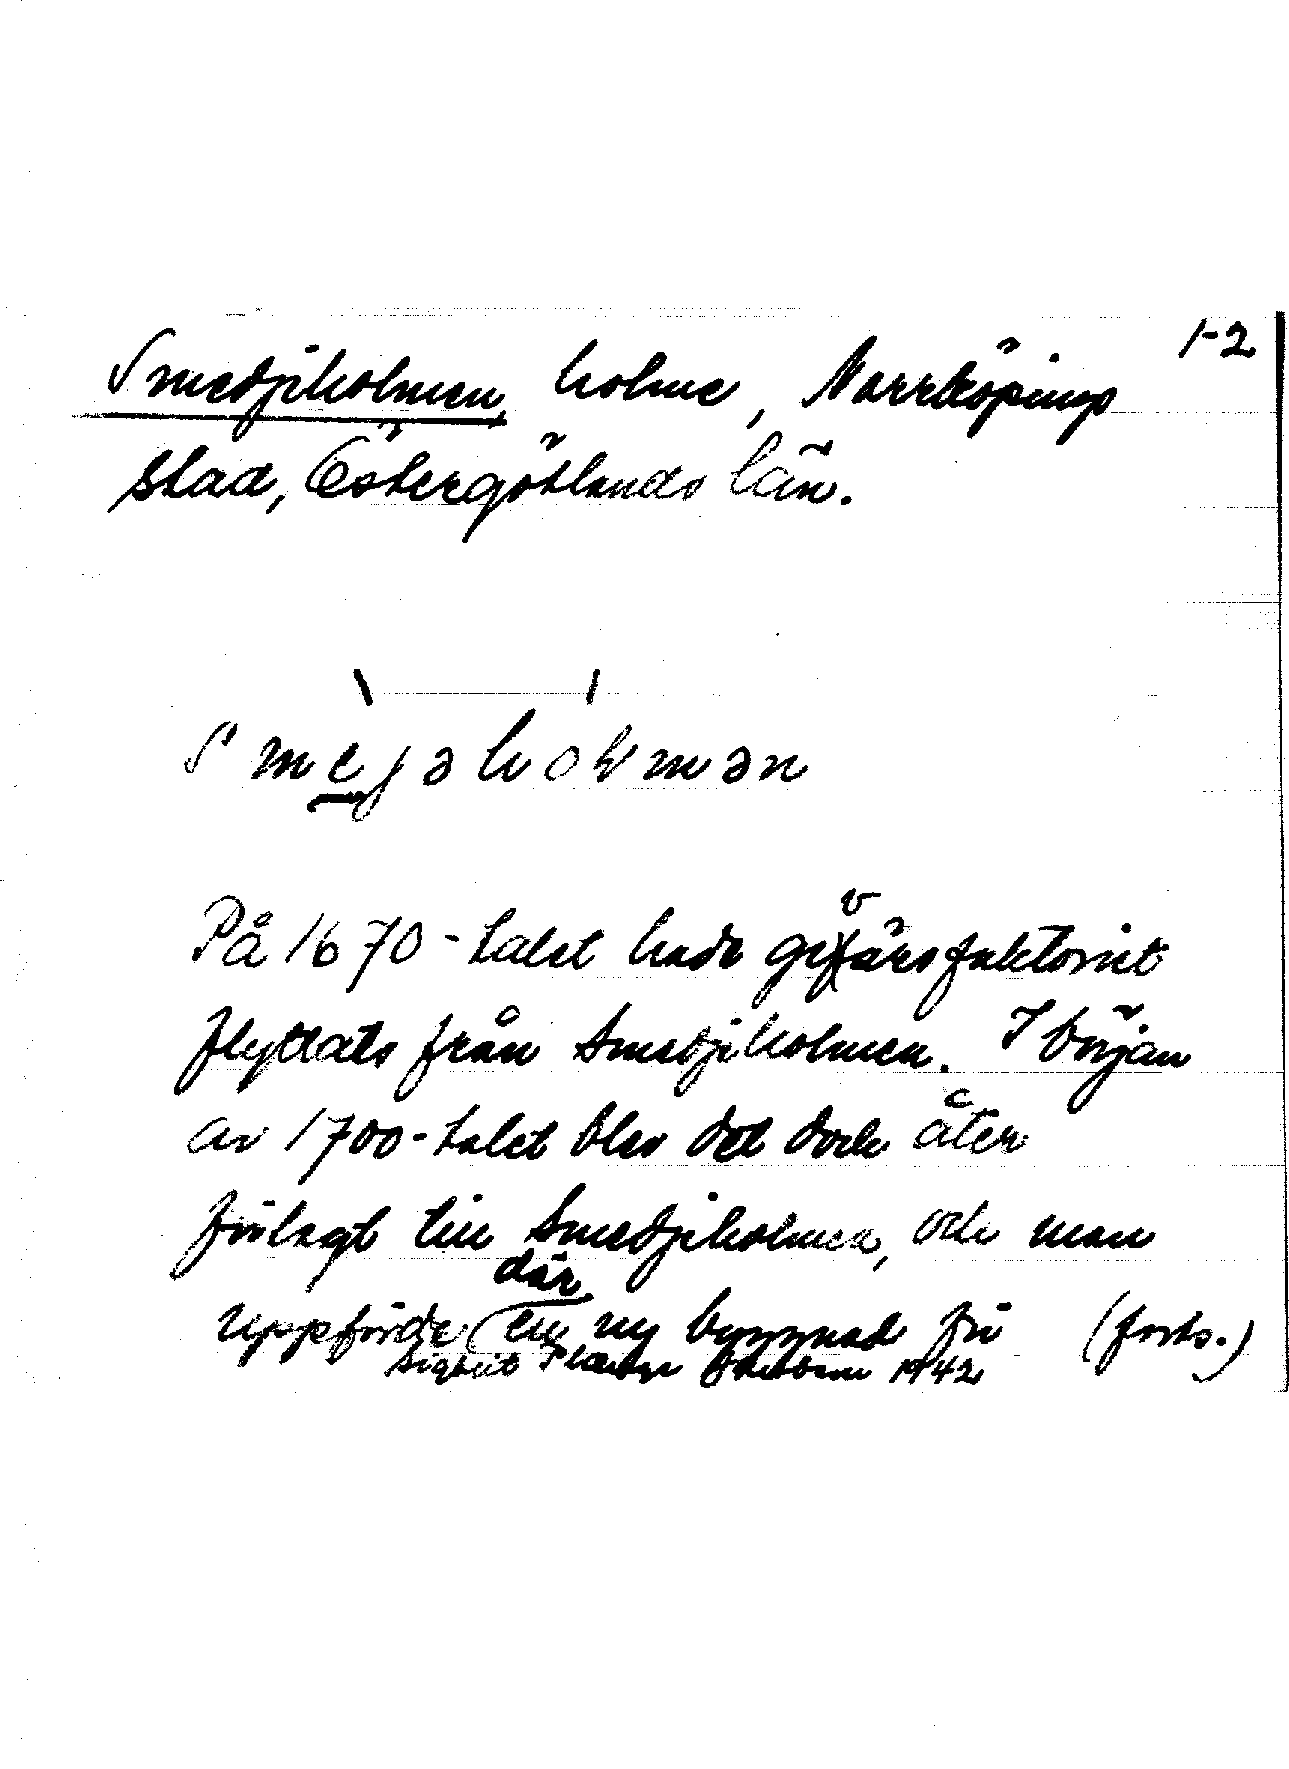 1-2
Smedjeholmen, holme, Norrköpings
stad, Östergötlands län.
Smejəholəmən
På 1670-talet hade gevärsfaktoriet
flyttats från Smedjeholmen. I början
av 1700-talet blev det dock åter
förlagt till Smedjeholmen, och man
där
uppförde en ny byggnad för (forts.)
1942